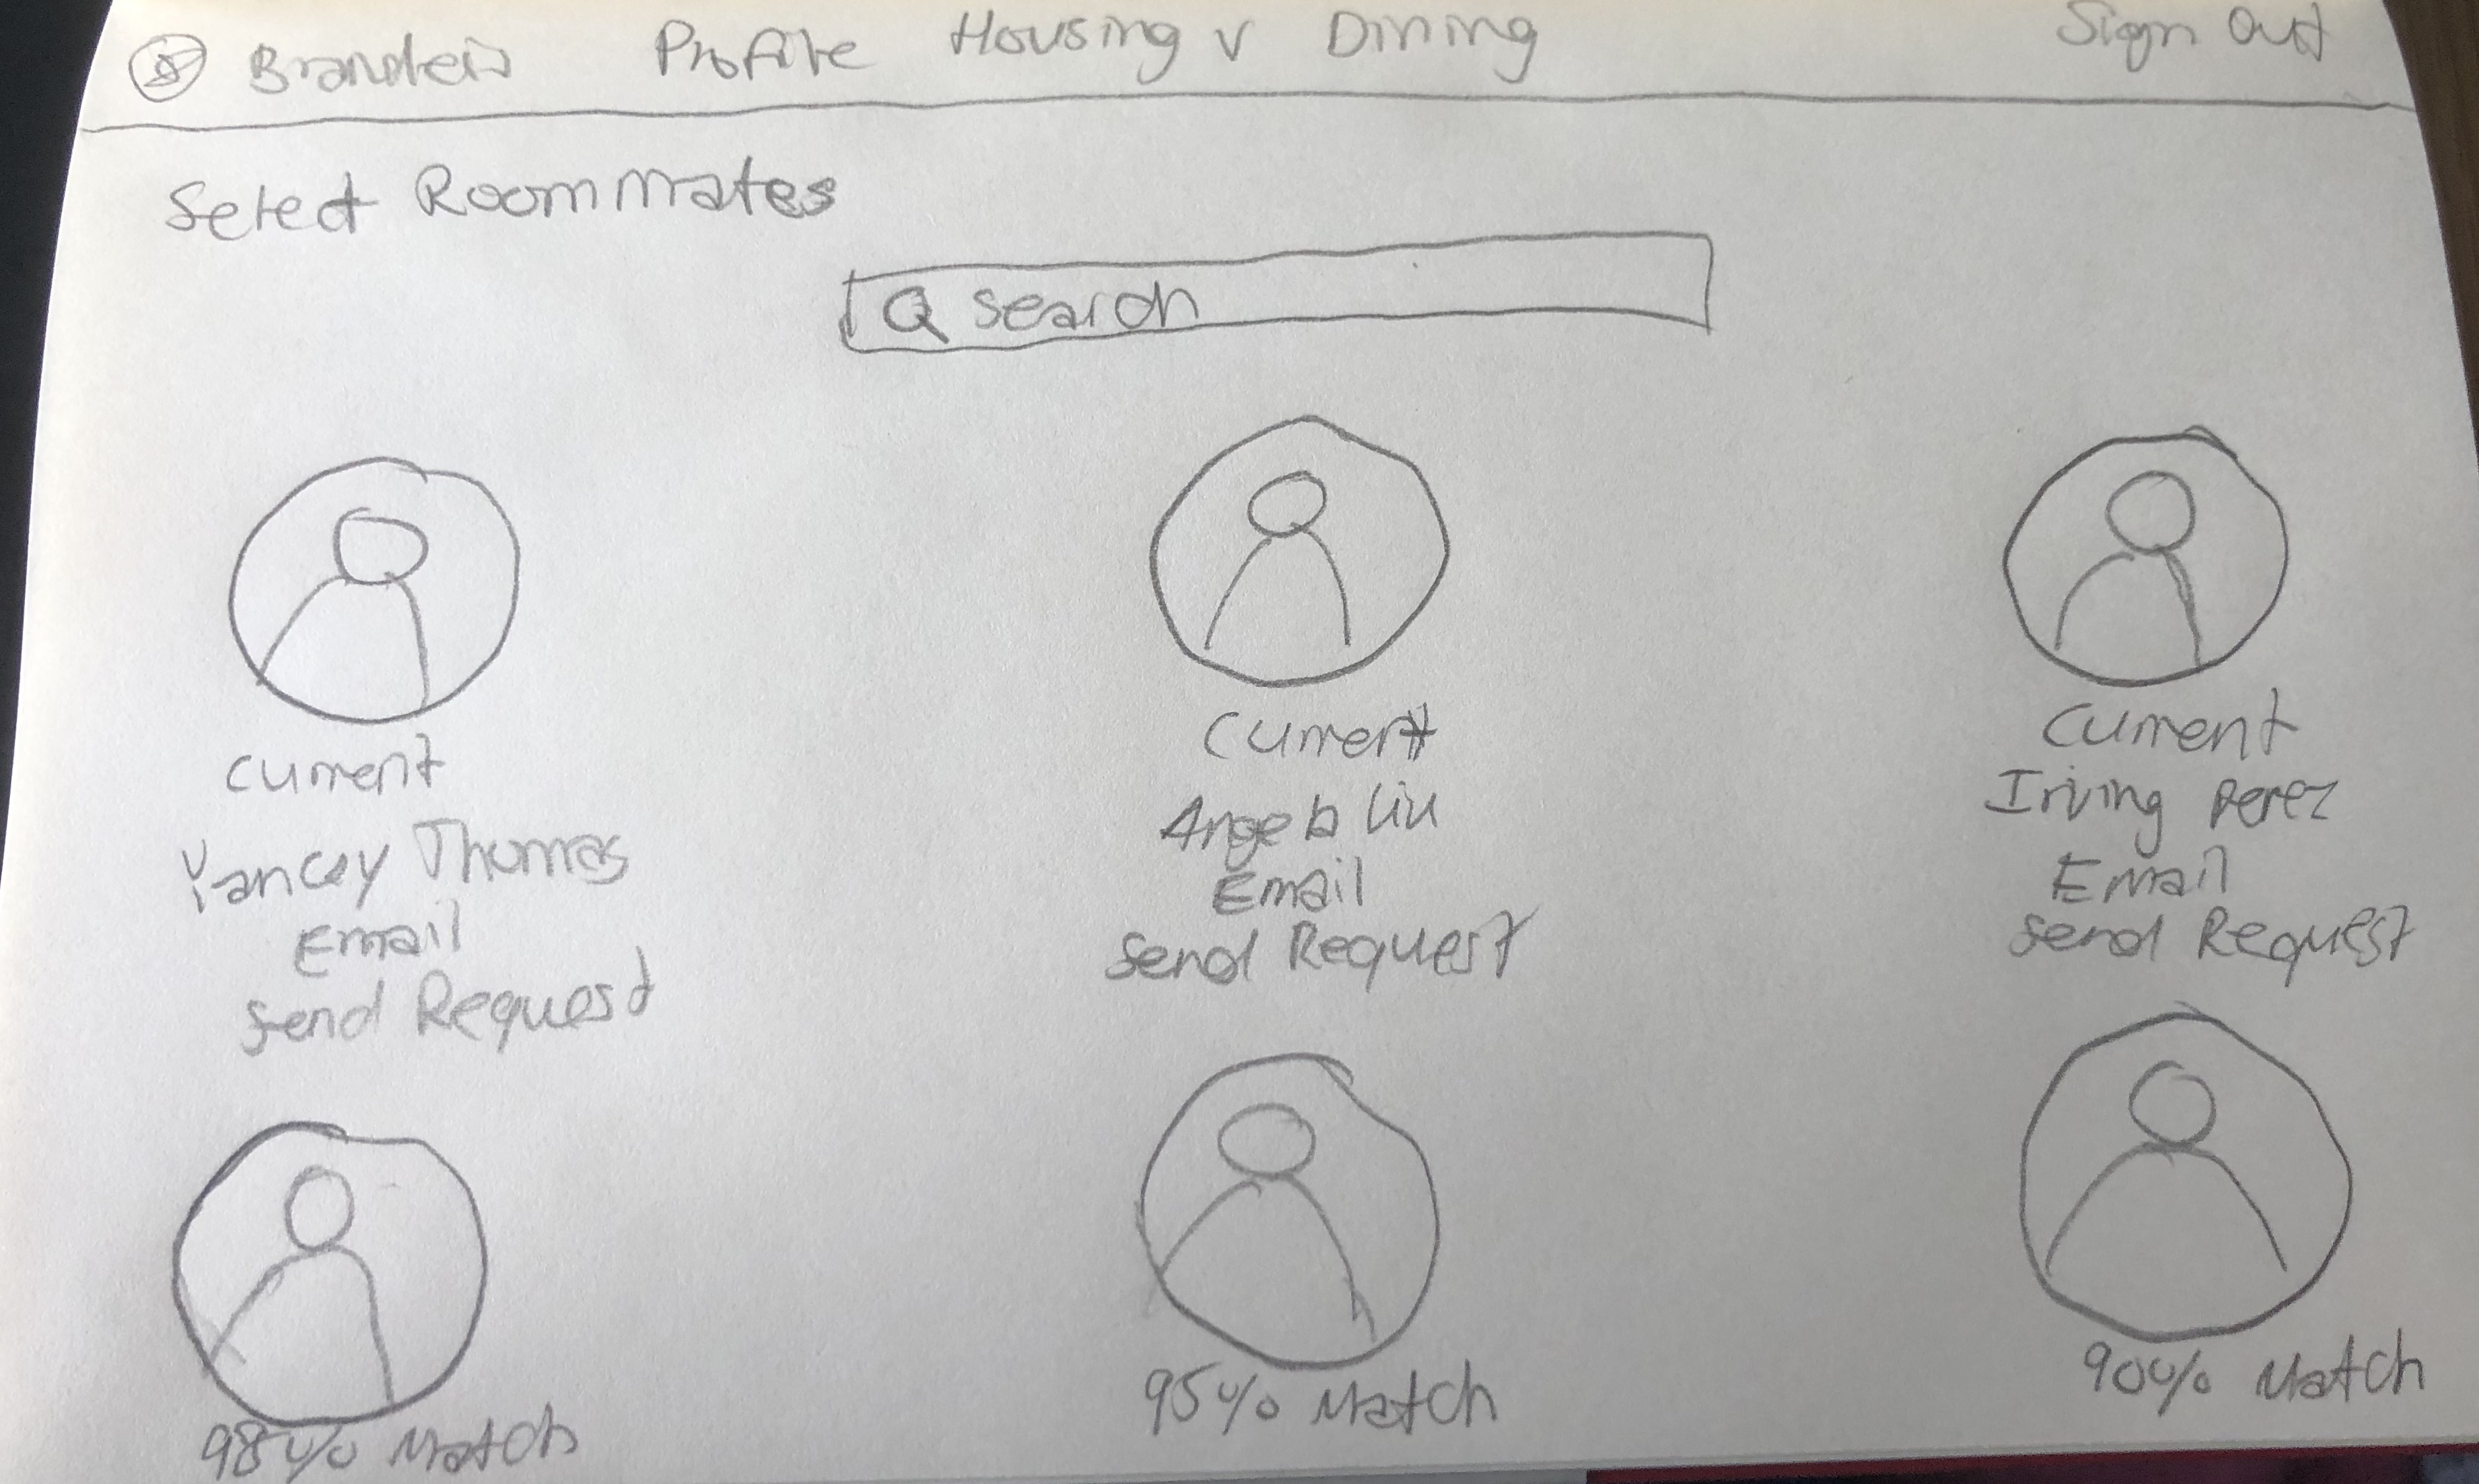 Brandeis Profile Housing v Dining Sign Out
Select Roommates
Search
Current
Yancey Thomas
Email
Send Request
Current
Angela Liu
Email
Send Request
Current
Irving Perez
Email
Send Request
98% Match
95% Match
90% Match